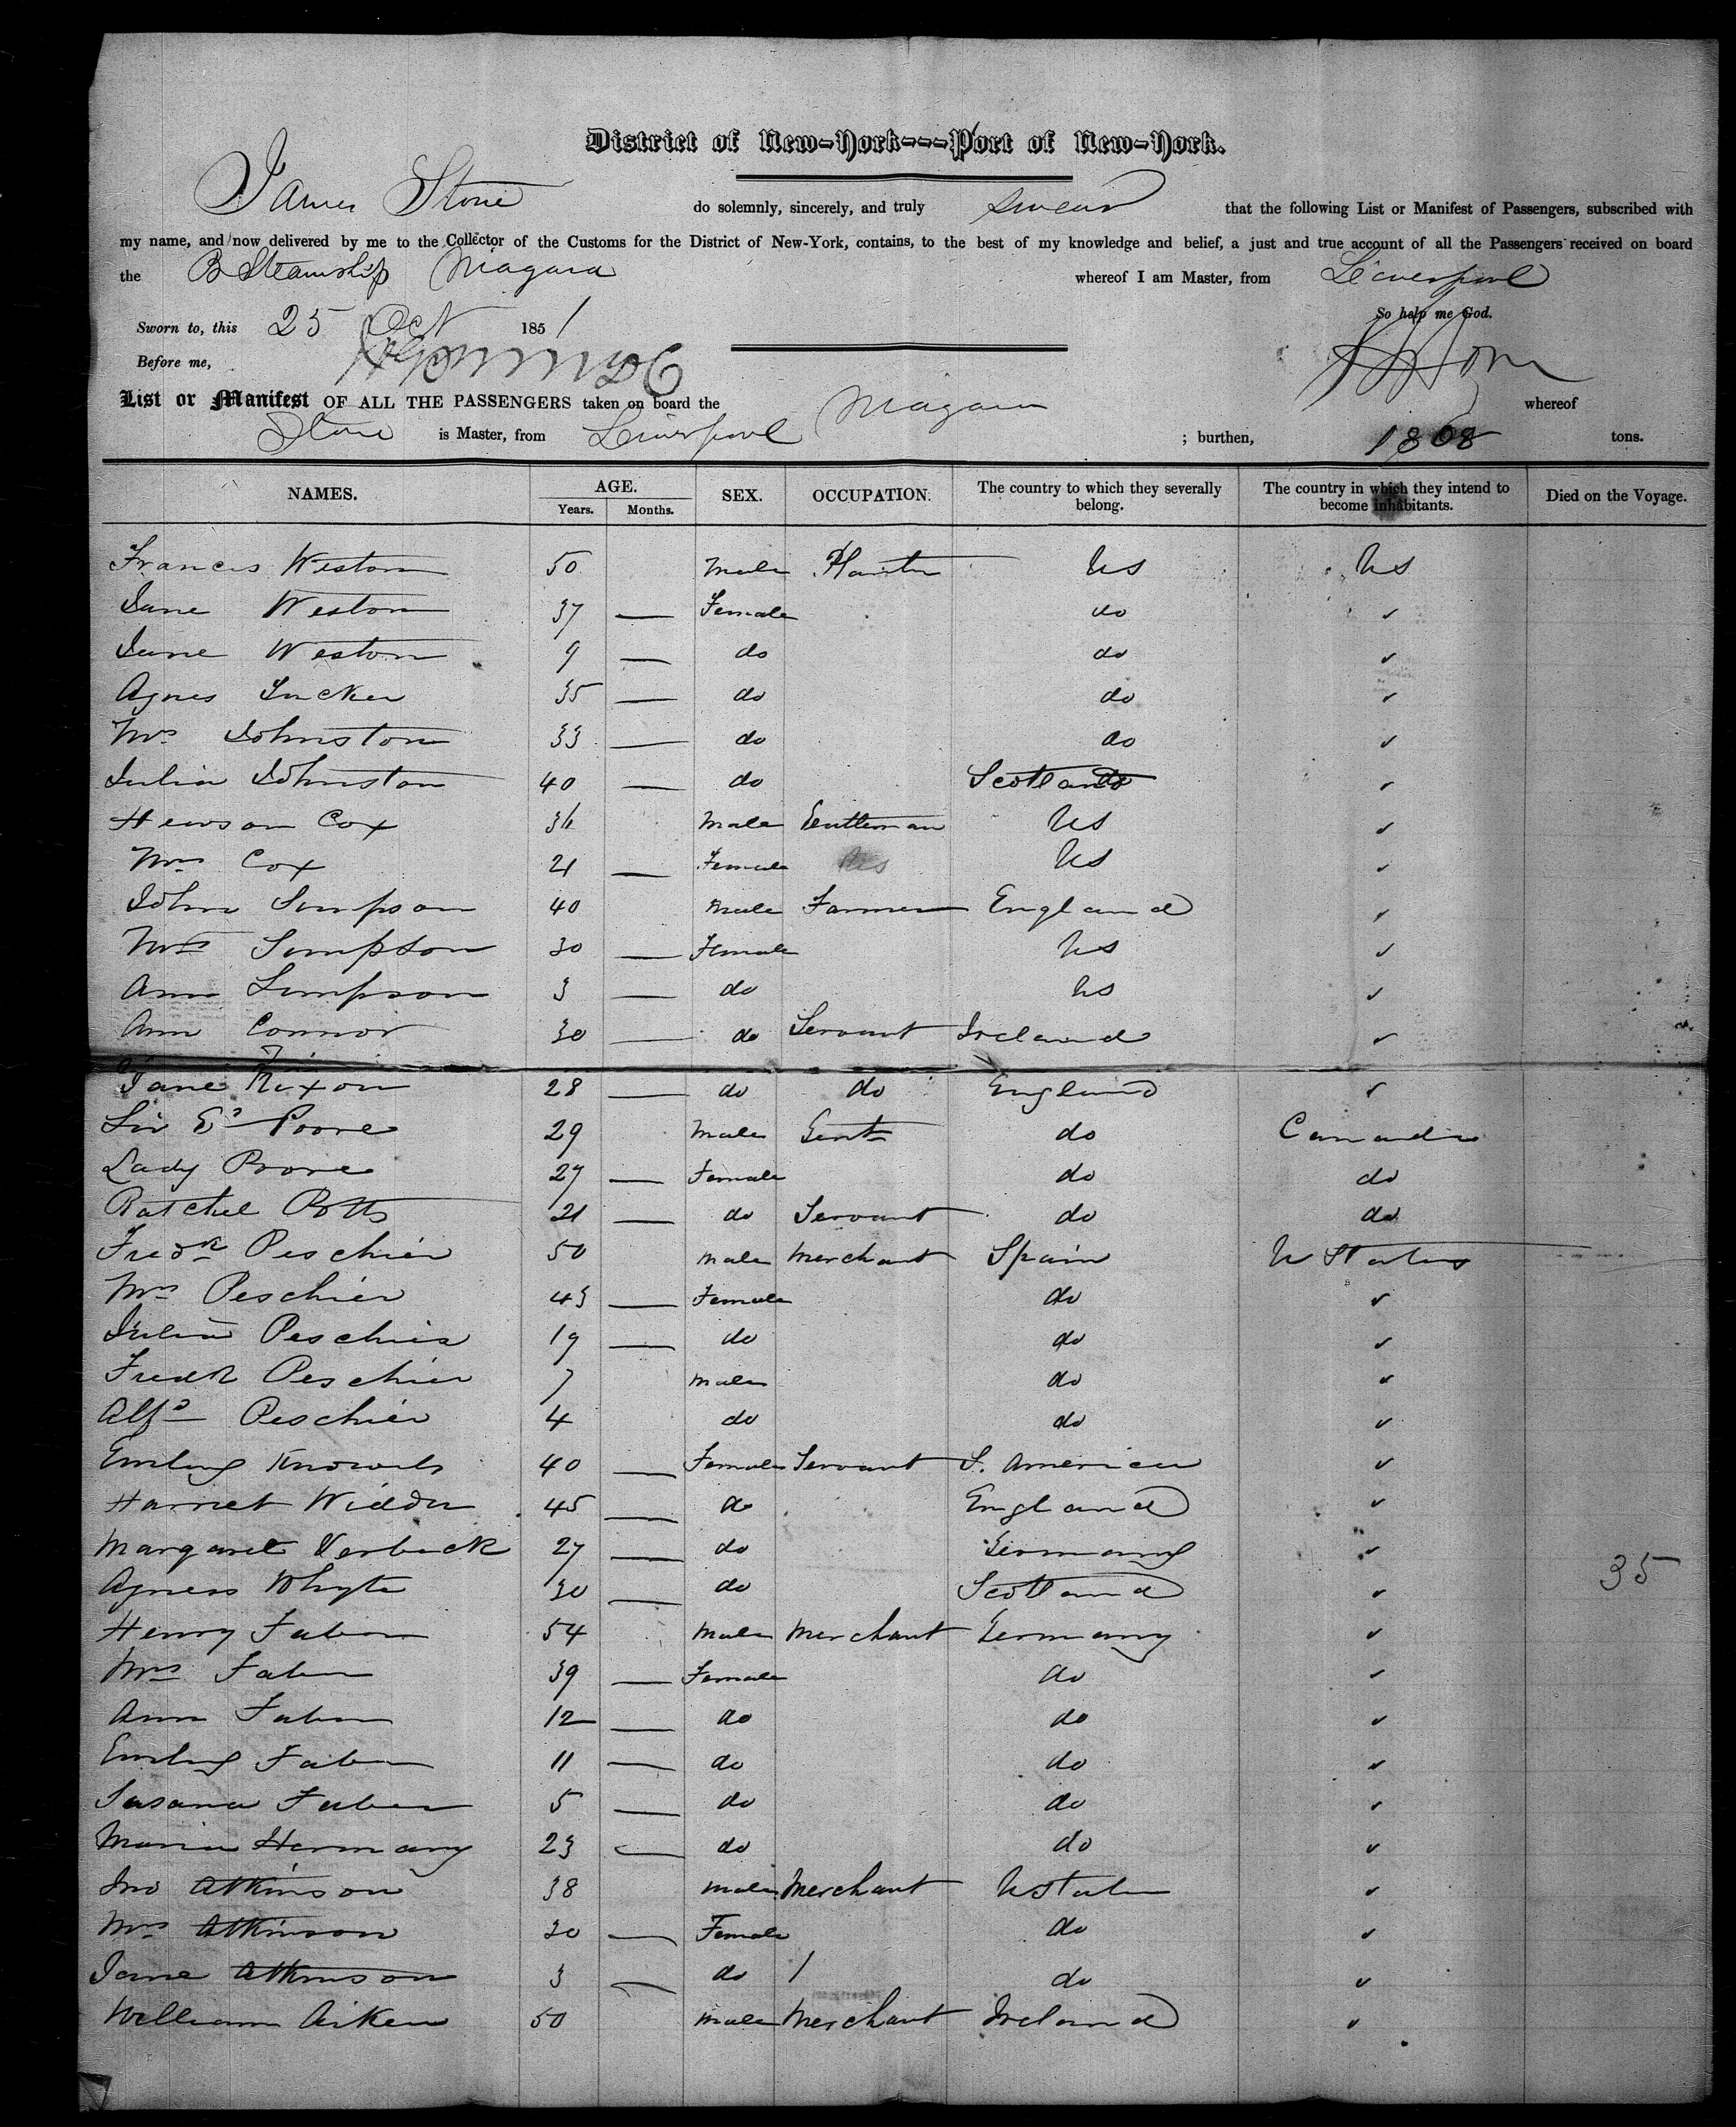 District of New-York---Port of New-York.
James Stone do solemnly, sincerely, and truly swear that the following List or Manifest of Passengers, subscribed with
my name, and now delivered by me to the Collector of the Customs for the District of New-York, contains, to the best of my knowledge and belief, a just and true account of all the Passengers received on board
the B Steamship Niagara whereof I am Master, from Liverpool
So help me God.
Sworn to, this 25 Oct 1851
Before me,
List or Manifest OF ALL THE PASSENGERS taken on board the Niagara whereof
Stone is Master, from Liverpool ; burthen, 1868 tons.
NAMES. AGE. Years. Months. SEX. OCCUPATION. The country to which they severally belong. The country in which they intend to become inhabitants. Died on the Voyage.
Francis Weston 50 Male Planter US US
Jane Weston 37 — Female do ✓
Jane Weston 9 — do do ✓
Agnes Tucker 35 — do do ✓
Mrs Johnston 33 — do do ✓
Julia Johnston 40 — do Scotland ✓
Hewson Cox 36 Male Gentleman US ✓
Mrs Cox 21 — Female US ✓
John Simpson 40 Male Farmer England ✓
Mrs Simpson 30 — Female US ✓
Ann Simpson 3 — do US ✓
Ann Connor 30 — do Servant Ireland ✓
Jane Nixon 28 — do do England ✓
Sir Ed Poore 29 Male Gent do Canada
Lady Poore 27 — Female do do
Ratchel Potts 21 — do Servant do do
Fredk Peschier 50 Male Merchant Spain U States
Mrs Peschier 43 — Female do ✓
Julia Peschier 19 — do do ✓
Fredk Peschier 7 Male do ✓
Alfd Peschier 4 do do ✓
Emily Knowels 40 — Female Servant S. America ✓
Harriet Widdu 45 — do England ✓
Margaret Verbeck 27 — do Germany ✓
35
Agness Whyte 30 — do Scotland ✓
Henry Faber 54 Male Merchant Germany ✓
Mrs Faber 39 — Female do ✓
Ann Faber 12 — do do ✓
Emily Faber 11 — do do ✓
Susana Faber 5 — do do ✓
Maria Hermany 23 — do do ✓
Jno Atkinson 38 Male Merchant U States ✓
Mrs Atkinson 30 — Female do ✓
Jane Atkinson 3 — do / do ✓
William Aiken 50 Male Merchant Ireland ✓